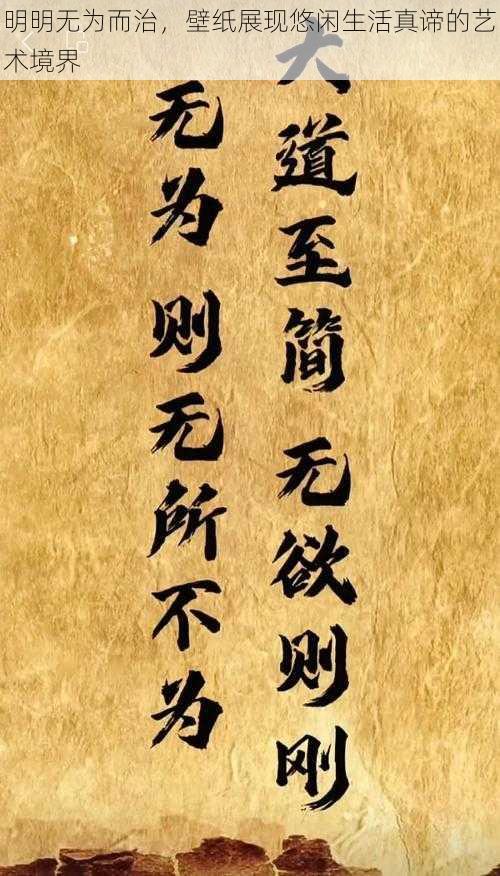 明明无为而治，壁纸展现悠闲生活真谛的艺
术境界
大道至简 无欲则刚
无为 则无所不为